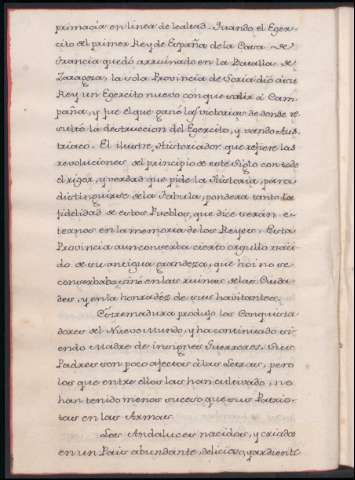 primacia en linea de lealtad. Quando el Exer-
cito del primer Rey de España de la Casa de
Francia quedó arruinado en la Batalla de
Zaragoza, la sola Provincia de Soria dió à su
Rey un Exercito nuevo con que salir à Cam-
paña, y fue el que ganó las victorias de donde re
sultó la destruccion del Exercito, y vando Aus
triaco. El ilustre Historiador que refiere las
revoluciones del principio de este Siglo con todo
el rigor, y verdad que pide la Historia, para
distinguirse de la Fabula, pondera tanto la
fidelidad de estos Pueblos, que dice serán e-
ternos en la memoria de los Reyes. Esta
Provincia aun conserva cierto orgullo naci
do de su antigua grandeza, que hoi no se
conserba sinó en las ruinas de las Ciuda-
des, y en la honradéz de sus havitantes.
Extremadura produjo los Conquista
dores del Nuevo Mundo, y ha continuado si-
endo Madre de insignes Guerreros. Sus
Pueblos son poco afectos à las Letras, pero
los que entre ellos las han cultivado, no
han tenido menos suceso que sus Patrio-
tas en las Armas.
Los Andaluces nacidos, y criados
en un Pais abundante, delicioso, y ardiente